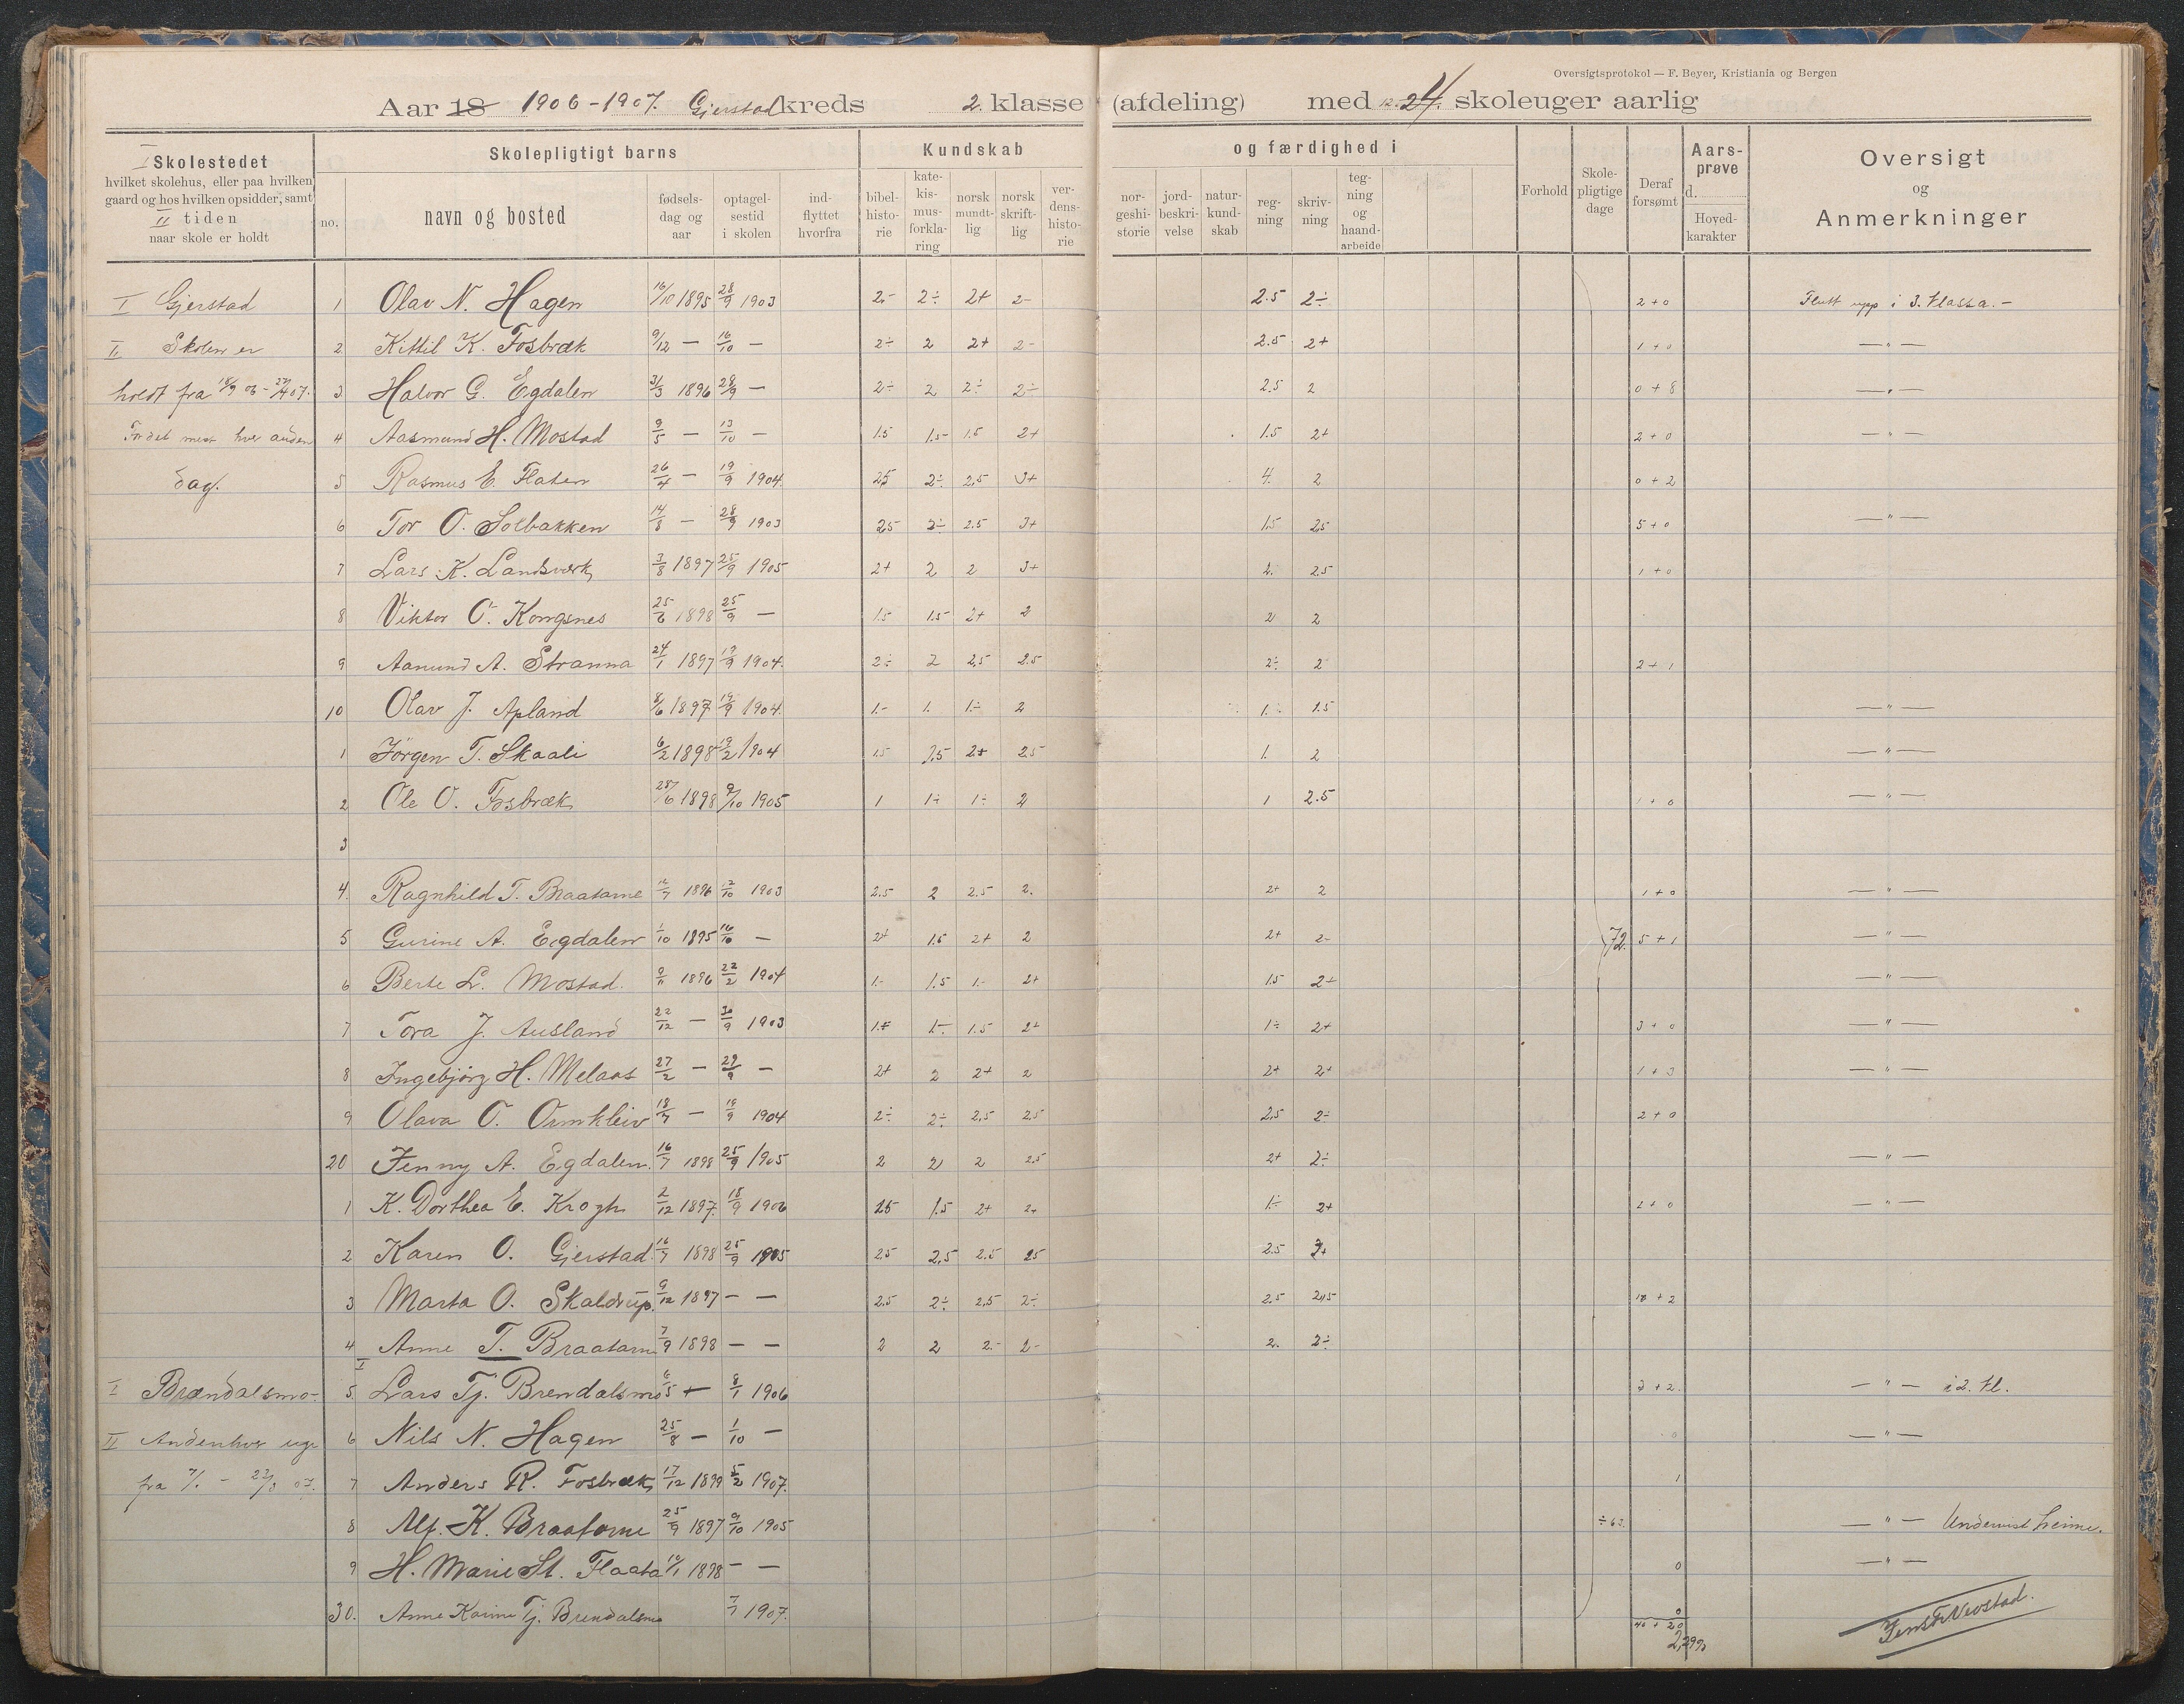 Oversigtsprotokol — F. Beyer, Kristiania og Bergen
Aar 18 1906-1907. Gjerstad kreds 2. klasse (afdeling) med 12. 24. skoleuger aarlig
I Skolestedet
hvilket skolehus, eller paa hvilken
gaard og hos hvilken opsidder, samt
II tiden
naar skole er holdt
Skolepligtigt barns
no.
navn og bosted
fødsels-
dag og
aar
optagel-
sestid
i skolen
ind-
flyttet
hvorfra
Kundskab
bibel-
histo-
rie
kate-
kis-
mus-
forkla-
ring
norsk
mundt-
lig
norsk
skrift-
lig
ver-
dens-
histo-
rie
og færdighed i
nor-
geshi-
storie
jord-
beskri-
velse
natur-
kund-
skab
reg-
ning
skriv-
ning
teg-
ning
og
haand-
arbeide
Forhold
Skole-
pligtige
dage
Deraf
forsømt
Aars-
prøve
d.
Hoved-
karakter
Oversigt
og
Anmerkninger
I Gjerstad 1 Olav N. Hagen 16/10 1895 28/9 1903 2.- 2÷ 2+ 2- 2.5 2÷ 2+0 Flutt upp i 3. klassa.-
II Skolen er 2 Kittil K. Fosbræk 9/12 — 16/10 — 2÷ 2 2+ 2- 2.5 2+ 1+0 — " —
holdt fra 18/9 06 - 27/4 07. 3 Halvor G. Egdalen 31/3 1896 28/9 — 2÷ 2 2÷ 2÷ 2.5 2 0+8 — " —
For det mest hver anden 4 Aasmund H. Mostad 9/5 — 13/10 — 1.5 1.5- 1.5 2+ 1.5 2+ 2+0 — " —
dag. 5 Rasmus E. Flaten 26/4 — 19/9 1904. 2.5 2÷ 2,5 3+ 4. 2 0+2 — " —
6 Tor O. Solbakken 14/8 — 28/9 1903 2,5 2÷ 2.5 3+ 1.5 2,5 5+0 — " —
7 Lars K. Landsverk 3/8 1897 25/9 1905 2+ 2 2 3+ 2. 2.5 1+0
8 Viktor O. Kongsnes 25/6 1898 25/9 — 1.5 1.5 2+ 2 2 2
9 Aanund A. Stranna 24/1 1897 19/9 1904. 2÷ 2 2,5 2.5 2÷ 2 2+1
10 Olav J. Apland 8/6 1897 19/9 1904. 1.- 1. 1÷ 2 1.÷ 1.5 — " —
1 Jörgen T. Skaali 6/2 1898 19/2 1904 1.5 2,5 2+ 2.5 1. 2 — " —
2 Ole O. Fosbræk 28/6 1898 9/10 1905 1 1÷ 1÷ 2 1 2.5 1+0 — " —
3
4. Ragnhild T. Braatane 12/7 1896 12/10 1903 2.5 2 2.5 2. 2+ 2 1+0 — " —
5 Gurine A. Egdalen 1/10 1895 16/10 — 2+ 1.5 2+ 2 2+ 2- 72. 5+1 — " —
6 Berte L. Mostad. 9/11 1896 22/2 1904 1.- 1.5 1.- 2+ 1.5 2+ — " —
7 Tora J. Ausland 22/12 — 30/9 1903 1.÷ 1÷ 1.5 2+ 1÷ 2+ 3+0 — " —
8 Ingebjörg H. Melaas 27/2 — 29/9 — 2+ 2 2+ 2 2+ 2+ 1+3 — " —
9 Olava O. Ormkleiv 18/7 — 19/9 1904 2÷ 2÷ 2,5 2.5 2,5 2÷ 2+0
20 Jenny A. Egdalen. 16/7 1898 25/9 1905 2 2 2 2.5 2+ 2÷ — " —
1 K. Dorthea E. Krogh 2/12 1897. 18/9 1906 2.5 1.5 2+ 2+ 1÷ 2+ 2+0 — " —
2 Karen O. Gjerstad. 16/7 1898 25/9 1905 2.5 2,5 2.5 2.5 2.5 3+
3 Marta O. Skaldrup. 9/12 1897 — — 2.5 2÷ 2,5 2÷ 2.5 2,5 10+2
4 Anne T. Braatane 7/9 1898 — — 2 2 2.- 2- 2. 2÷
I Brændalsmo- 5. Lars Tj. Brendalsmo 6/5 + 8/1 1906 3+2. — " — i 2. kl.
II Andenhver uge 6 Nils N. Hagen 25/8 — 1/10 — 0 — " —
fra 7/1 - 23/3 07. 7 Anders R. Fosbræk 17/12 1899 5/2 1907. 1
8 Alf. K. Braatane 25/9 1897 9/10 1905 ÷63. — " — Undervist heime.
9 H. Marie St. Flaata 10/1 1898 — — 0 — " —
30. Anne Karine Tj. Brendalsmo 7/1 1907. 0
40+20
2,29%
Jens Fr. Nevstad.